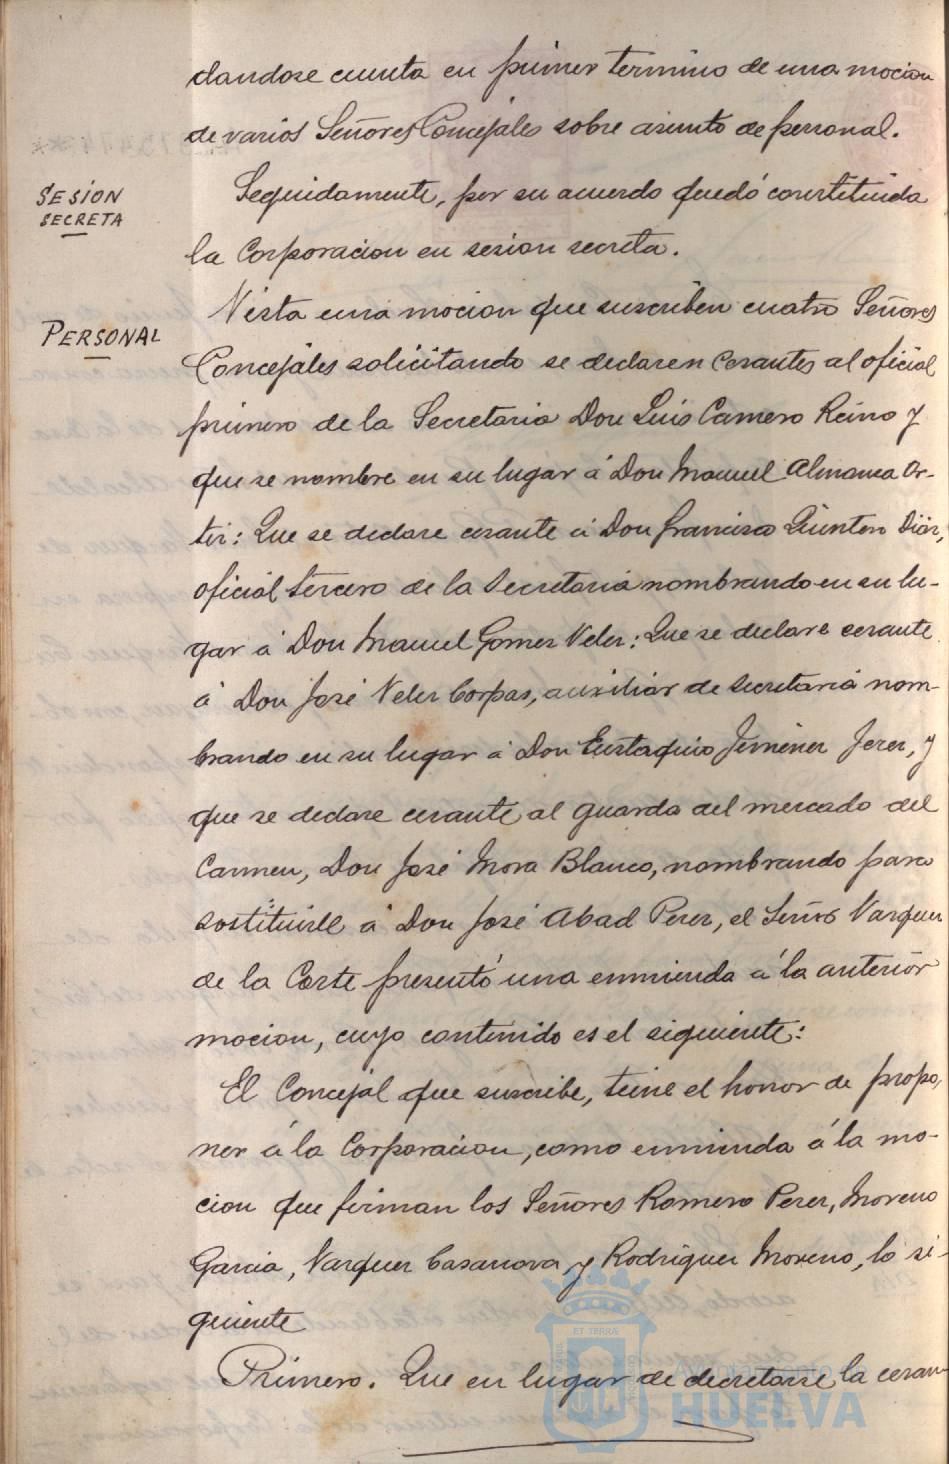 dandose cuenta en primer termino de una mocion
de varios Señores Concejales sobre asunto de personal.
SESION
SECRETA
Seguidamente, por su acuerdo quedó constituida
la Corporacion en sesion secreta.
PERSONAL
Vista una mocion que suscriben cuatro Señores
Concejales solicitando se declaren cesantes al oficial
primero de la Secretaria Don Luis Camero Reino y
que se nombre en su lugar á Don Manuel Almansa Or-
tiz: Que se declare cesante á Don Francisco Quintero Diaz,
oficial tercero de la Secretaria nombrando en su lu-
gar á Don Manuel Gomez Velez: Que se declare cesante
á Don José Velez Corpas, auxiliar de Secretaria nom-
brando en su lugar á Don Eustaquio Jimenez Jerez, y
que se declare cesante al guarda del mercado del
Carmen, Don José Mora Blanco, nombrando para
sostituirle á Don José Abad Perez, el Señor Vazquez
de la Corte presentó una enmienda á la anterior
mocion, cuyo contenido es el siguiente:
El Concejal que suscribe, tiene el honor de propo,
ner á la Corporacion, como enmienda á la mo-
cion que firman los Señores Romero Perez, Moreno
Garcia, Vazquez Casanova y Rodriguez Moreno, lo si-
guiente
Primero. Que en lugar de decretarse la cesan-
ET TERRÆ
Ayuntamiento de
HUELVA